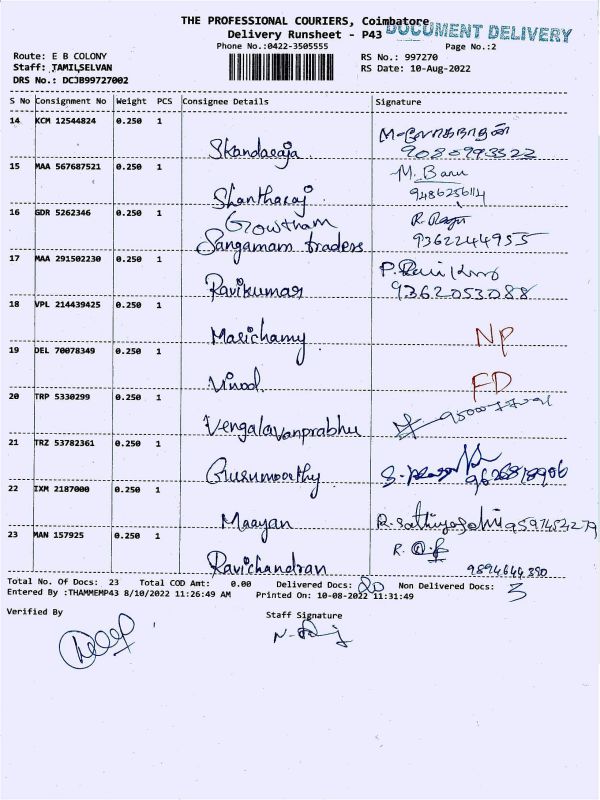 THE PROFESSIONAL COURIERS, Coimbatore
DOCUMENT DELIVERY
Delivery Runsheet - P43
Phone No.:0422-3505555
Page No.:2
Route: E B COLONY
RS No.: 997270
Staff: TAMILSELVAN
RS Date: 10-Aug-2022
DRS No.: DCJB99727002
S No Consignment No Weight PCS Consignee Details Signature
14 KCM 12544824 0.250 1
Skandaraja
15 MAA 567687521 0.250 1
M. Banu
Shantharaj 9486256114
16 GDR 5262346 0.250 1
Growtham
Sangamam traders 9362244955
17 MAA 291502230 0.250 1
Ravikumar 9362053088
18 VPL 214439425 0.250 1
Marichamy NP
19 DEL 70078349 0.250 1
Vinod FD
20 TRP 5330299 0.250 1
Vengalavanprabhu
21 TRZ 53782361 0.250 1
Gurumoorthy
22 IXM 2187000 0.250 1
Maayan
23 MAN 157925 0.250 1
Ravichandran 9894644390
Total No. Of Docs: 23 Total COD Amt: 0.00 Delivered Docs: 20 Non Delivered Docs: 3
Entered By :THAMMEMP43 8/10/2022 11:26:49 AM Printed On: 10-08-2022 11:31:49
Verified By Staff Signature